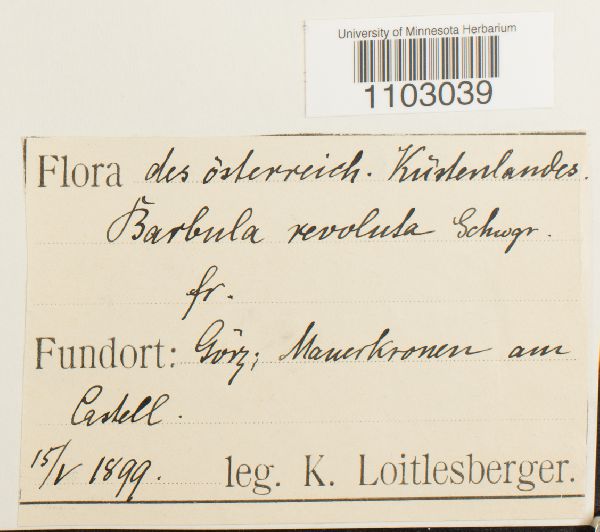 University of Minnesota Herbarium
1103039
Flora des österreich. Küstenlandes.
Barbula revoluta Schwgr.
fr.
Fundort: Görz; Mauerkronen am
Castell.
15/V 1899. leg. K. Loitlesberger.